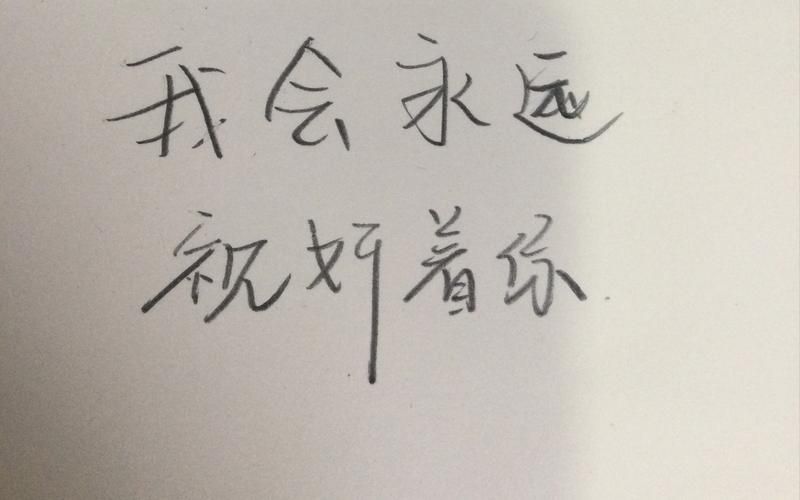 我会永远
祝妍着你